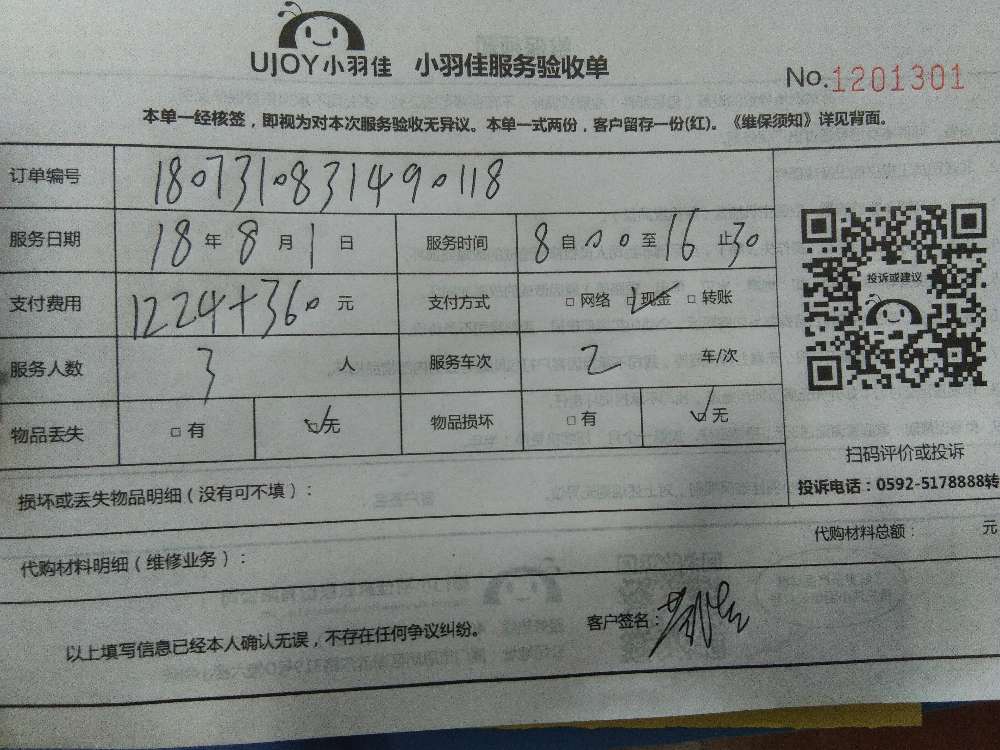 UJOY小羽佳 小羽佳服务验收单
No.1201301
本单一经核签，即视为对本次服务验收无异议。本单一式两份，客户留存一份(红)。《维保须知》详见背面。
订单编号 1807310831490118
服务日期 18 年 8 月 1 日 服务时间 8 自 00 至 16 止 30
支付费用 1224+360 元 支付方式 □ 网络 □ 现金 □ 转账
服务人数 3 人 服务车次 2 车/次
物品丢失 □ 有 ☑ 无 物品损坏 □ 有 ☑ 无
投诉或建议
扫码评价或投诉
投诉电话：0592-5178888转
损坏或丢失物品明细（没有可不填）：
代购材料明细（维修业务）： 代购材料总额： 元
以上填写信息已经本人确认无误，不存在任何争议纠纷。 客户签名：